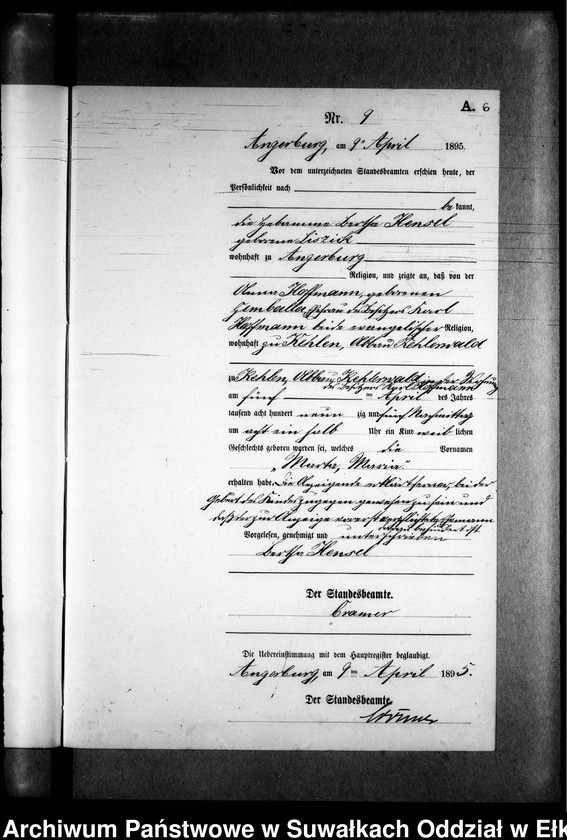 A. 6
Nr. 9
Angerburg, am 9ten April 1895.
Vor dem unterzeichneten Standesbeamten erschien heute, der
Persönlichkeit nach
be kannt,
die Hebamme Bertha Hensel
geborene Liszick
wohnhaft zu Angerburg
Religion, und zeigte an, daß von der
Anna Hoffmann, geborenen
Zimballa, Ehefrau des Besitzers Karl
Hoffmann beide evangelischer Religion,
wohnhaft zu Kehlen, Abbau Kehlerwald
zu Kehlen, Abbau Kehlerwald in der Wohnung
des Besitzers Karl Hoffmann
am fünf ten April des Jahres
tausend acht hundert neun zig und fünf Nachmittags
um acht ein halb Uhr ein Kind weib lichen
Geschlechts geboren worden sei, welches die Vornamen
„Marta, Maria"
erhalten habe. Die Anzeigende erklärt ferner, bei der
Geburt des Kindes zugegen gewesen zu sein und
daß der zur Anzeige verpflichtete Ehemann
behindert ist
Vorgelesen, genehmigt und unterschrieben
Bertha Hensel
Der Standesbeamte.
Cramer
Die Uebereinstimmung mit dem Hauptregister beglaubigt.
Angerburg, am 9 ten April 1895.
Der Standesbeamte.
Cramer
Archiwum Państwowe w Suwałkach Oddział w Ełk